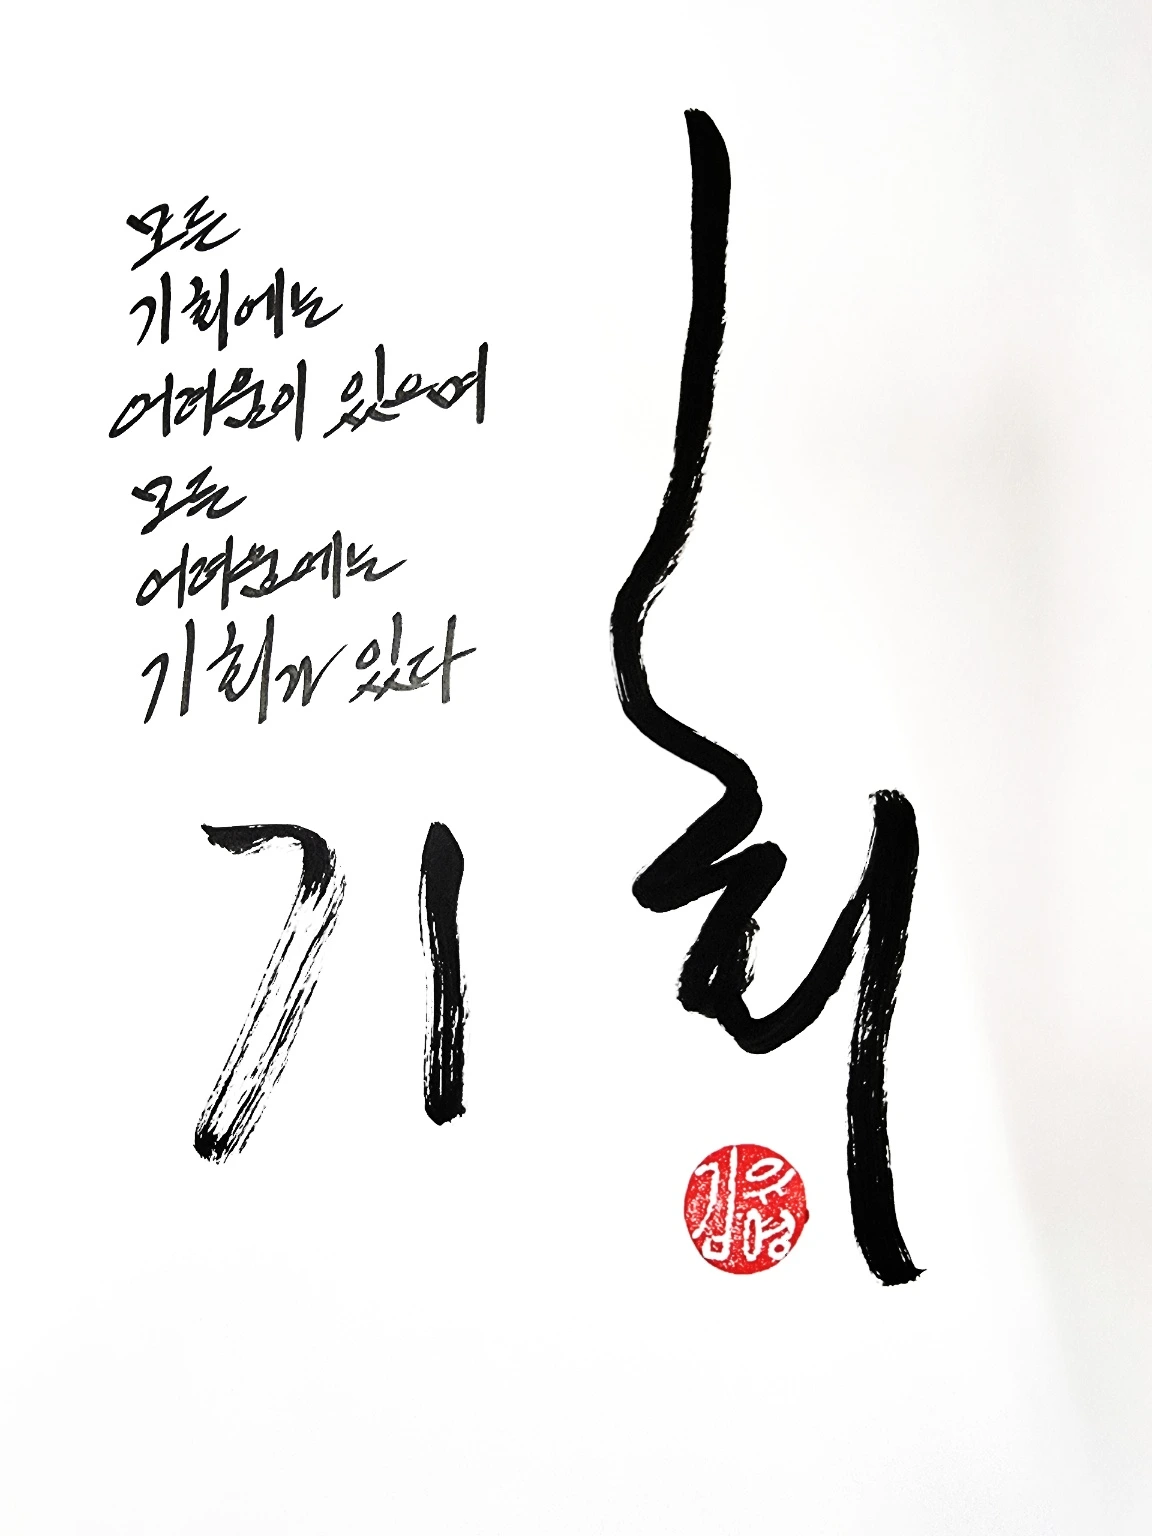 모든
기회에는
어려움이 있으며
모든
어려움에는
기회가 있다
기회